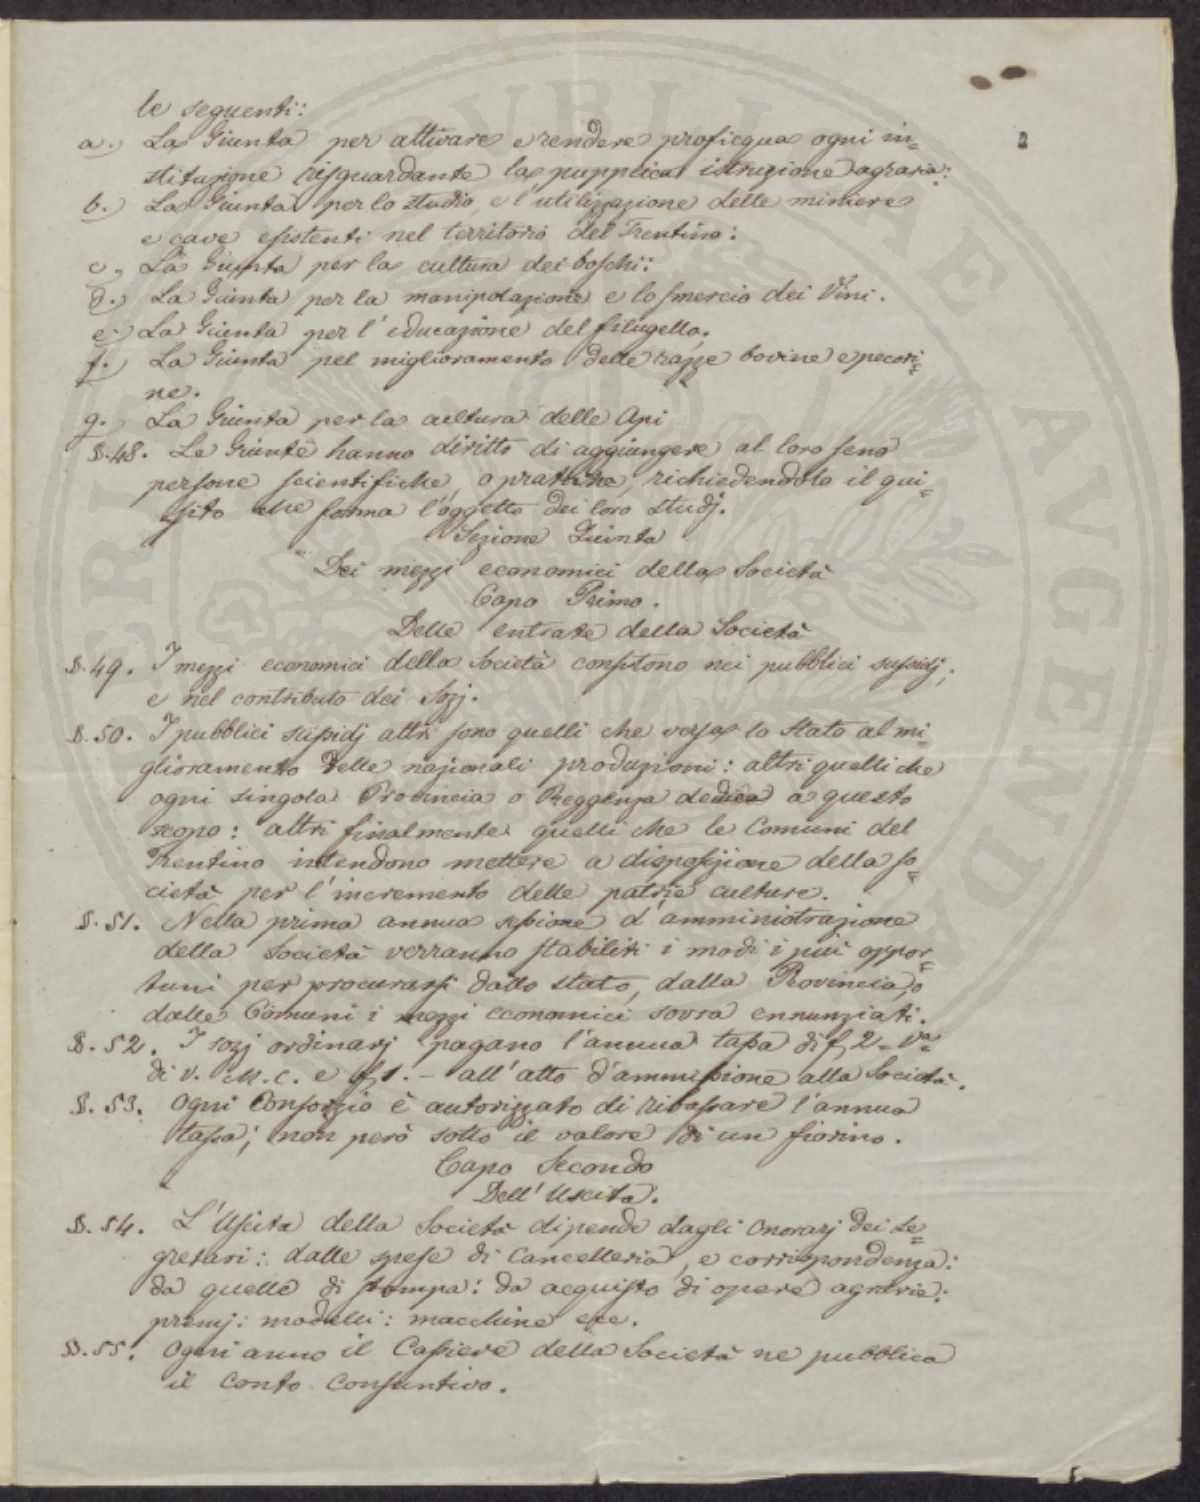 le seguenti:
a.) La Giunta per attivare e rendere proficqua ogni in=
stituzione risguardante la pupplica istruzione agraria:
b.) La Giunta per lo studio, e l'utilizzazione delle miniere
e cave esistenti nel territorio del Trentino:
c., La Giunta per la cultura dei boschi:
d.) La Giunta per la manipolazione e lo smercio dei Vini.
e.) La Giunta per l'educazione del filugello,
f.) La Giunta pel miglioramento delle razze bovine e pecori=
ne.
g.) La Giunta per la cultura delle Api
§.48. Le Giunte hanno diritto di aggiungere al loro seno
persone scientifiche, o prattiche, richiedendolo il qui=
sito che forma l'oggetto dei loro studj.
Sezione Quinta
Dei mezzi economici della Società
Capo Primo.
Delle entrate della Società
§.49. I mezzi economici della Società consistono nei pubblici sussidj,
e nel contributo dei Sozj.
§.50. I pubblici sussidj altri sono quelli che versa lo Stato al mi=
glioramento delle nazionali produzioni: altri quelli che
ogni singola Provincia o Reggenza dedica a questo
scopo: altri finalmente quelli che le Comuni del
Trentino intendono mettere a disposizione della so=
cietà per l'incremento delle patrie culture.
§.51. Nella prima annua sessione d'amministrazione
della Società verranno stabiliti i modi i più oppor=
tuni per procurarsi dallo stato, dalla Provincia, o
dalle Comuni i mezzi economici sovra ennunziati.
§.52. I sozj ordinarj pagano l'annua tassa di f 2=Va=
di v. M.C. e f 1.- all'atto d'ammissione alla Società.
§.53. Ogni Consorzio è autorizzato di ribassare l'annua
tassa; non però sotto il valore di un fiorino.
Capo Secondo
Dell'Uscita.
§.54. L'Uscita della Società dipende dagli Onorarj dei Se=
gretari: dalle spese di Cancelleria, e corrispondenza:
da quelle di stampa: da acquisto di opere agrarie:
premj: modelli: macchine ecc.
§.55. Ogni anno il Cassiere della Società ne pubblica
il conto Consuntivo.